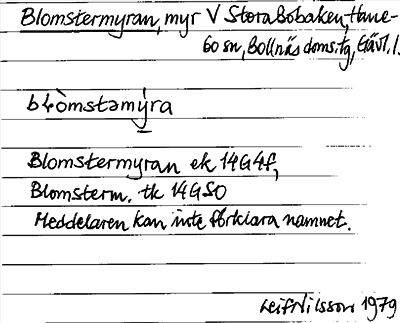 Blomstermyran, myr V Stora Bobaken, Hane-
bo sn, Bollnäs doms.tg, Gävl. l.
blòmstəmýra
Blomstermyran ek 14G4f,
Blomsterm. tk 14GSO
Meddelaren kan inte förklara namnet.
Leif Nilsson 1979